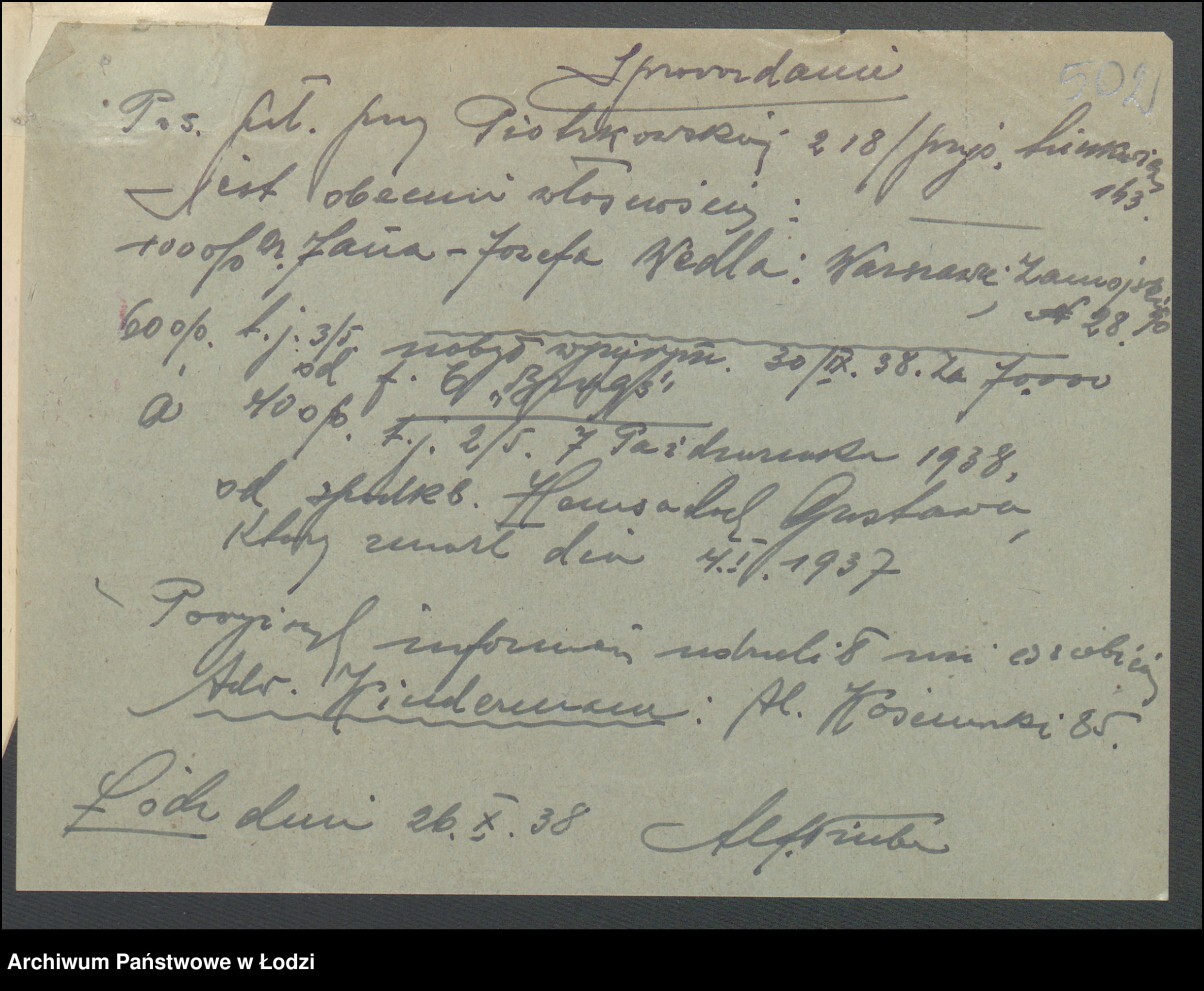 Sprawozdanie
502
Pos. fbt. przy Piotrkowskiej 218/przyjs. Sienkiewicza
143.
Jest obecnie własnością:
100% Dr. Jana - Jozefa Wedla: Warszawa Zamojskiego
№ 28.
60%. t.j. 3/5 nabył w przym. 30/IX. 38. za 70.000
od f. C "Brygs"
a 40%. t.j. 2/5. 7 Października 1938,
od spadkb. Gustawa,
Który zmarł dnia 4.I.1937
Powyższych informacji udzielił mi osobiście
Adw. Kinderman: Al. Kościuszki 85.
Łódz dnia 26.X.38
Archiwum Państwowe w Łodzi